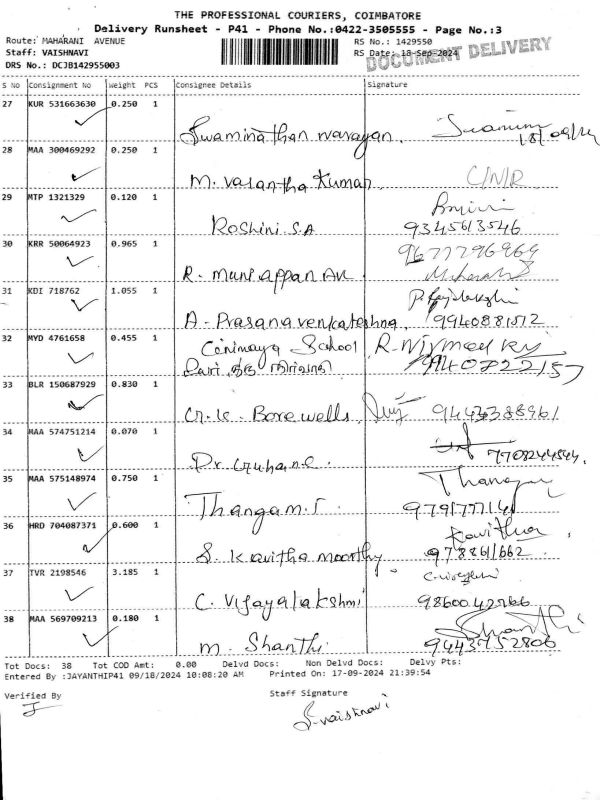 THE PROFESSIONAL COURIERS, COIMBATORE
Delivery Runsheet - P41 - Phone No.:0422-3505555 - Page No.:3
Route: MAHARANI AVENUE
RS No.: 1429550
Staff: VAISHNAVI
RS Date: 18-Sep-2024
DOCUMENT DELIVERY
DRS No.: DCJB142955003
S No Consignment No Weight PCS Consignee Details Signature
27 KUR 531663630 0.250 1
Swaminathan narayan.
28 MAA 300469292 0.250 1
M. Vasantha Kumar C/N/R
29 MTP 1321329 0.120 1
Roshini.S.A 9345613546
30 KRR 50064923 0.965 1
R. Muniappan 9677796969
31 KDI 718762 1.055 1
A. Prasanavenkateshna. 9940881572
32 MYD 4761658 0.455 1
School
33 BLR 150687929 0.830 1
Borewells 9443388961
34 MAA 574751214 0.070 1
Dr. Guhane. 7708244544
35 MAA 575148974 0.750 1
Thangam.S 9791777141
36 HRD 704087371 0.600 1
Kavitha
S. Kavitha moorthy 9788611662
37 TVR 2198546 3.185 1
C. Vijayalakshmi 9860042766
38 MAA 569709213 0.180 1
M. Shanthi 9443752806
Tot Docs: 38 Tot COD Amt: 0.00 Delvd Docs: Non Delvd Docs: Delvy Pts:
Entered By :JAYANTHIP41 09/18/2024 10:08:20 AM Printed On: 17-09-2024 21:39:54
Verified By Staff Signature
S.vaishnavi